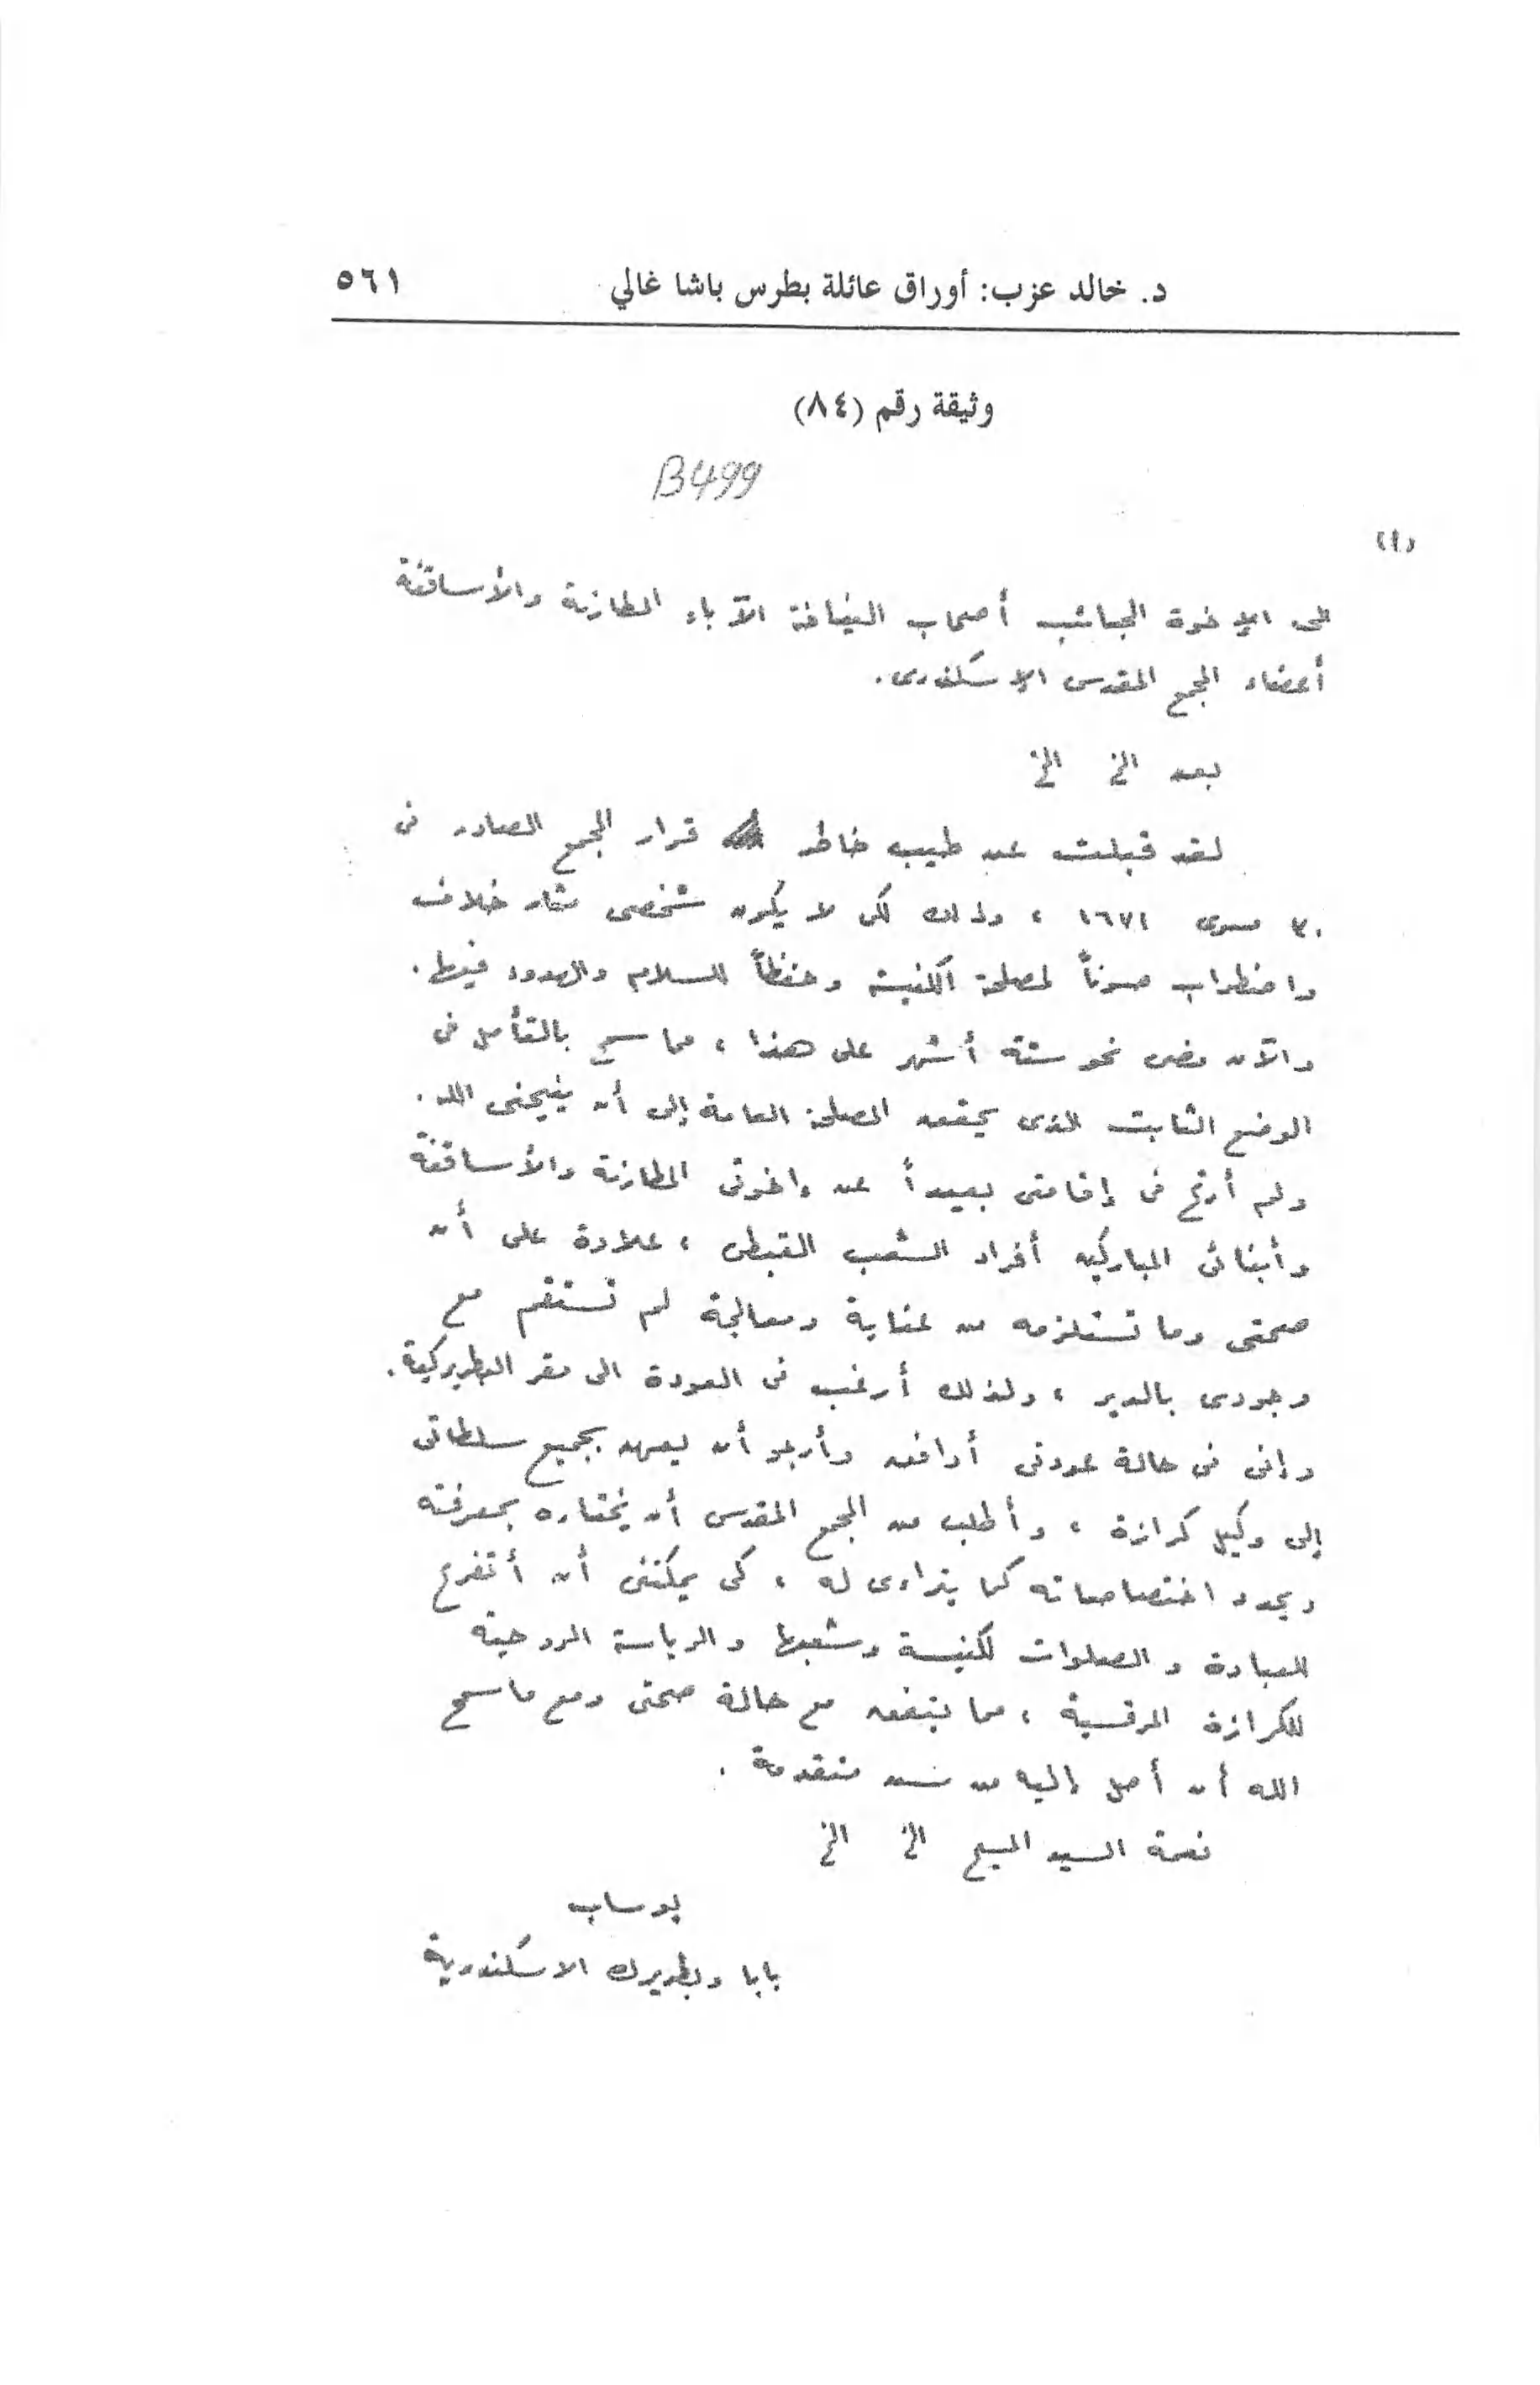 د. خالد عزب: أوراق عائلة بطرس باشا غالي ٥٦١
وثيقة رقم (٨٤)
B499
(١)
إلى الإخوة الحبائب أصحاب النيافة الآباء المطارنة والأساقفة
أعضاء المجمع المقدس الإسكندرى.
بعد الخ الخ
لقد قبلت عن طيب خاطر قرار المجمع الصادر فى
٣٠ مسرى ١٦٧١ ، وذلك لكى لا يكون شخصى مثار خلاف
واضطراب صوناً لمصلحة الكنيسة وحفظاً للسلام والهدوء فيها.
والآن مضى نحو ستة أشهر على هذا ، مما سمح بالتأمل فى
الوضع الثابت الذى يحقق المصلحة العامة إلى أن ينيحنى الله.
ولم أرتح فى إقامتى بعيداً عن إخوتى المطارنة والأساقفة
وأبنائى المباركين أفراد الشعب القبطى ، علاوة على أن
صحتى وما تستلزمه من عناية ومعالجة لم تستقم مع
وجودى بالدير ، ولذلك أرغب فى العودة الى مقر البطريركية.
وإنى فى حالة عودتى أوافق وأرجو أن يعهد بجميع سلطاتى
إلى وكيل كرازة ، وأطلب من المجمع المقدس أن يختاره بمعرفته
ويحدد اختصاصاته كما يتراءى له ، كى يمكننى أن أتفرغ
للعبادة والصلوات لكنيسة وشعبها والرياسة الروحية
للكرازة المرقسية ، مما يتفق مع حالة صحتى ومع ما سمح
الله أن أصل إليه من سن متقدمة .
نعمة السيد المسيح الخ الخ
يوساب
بابا وبطريرك الاسكندرية